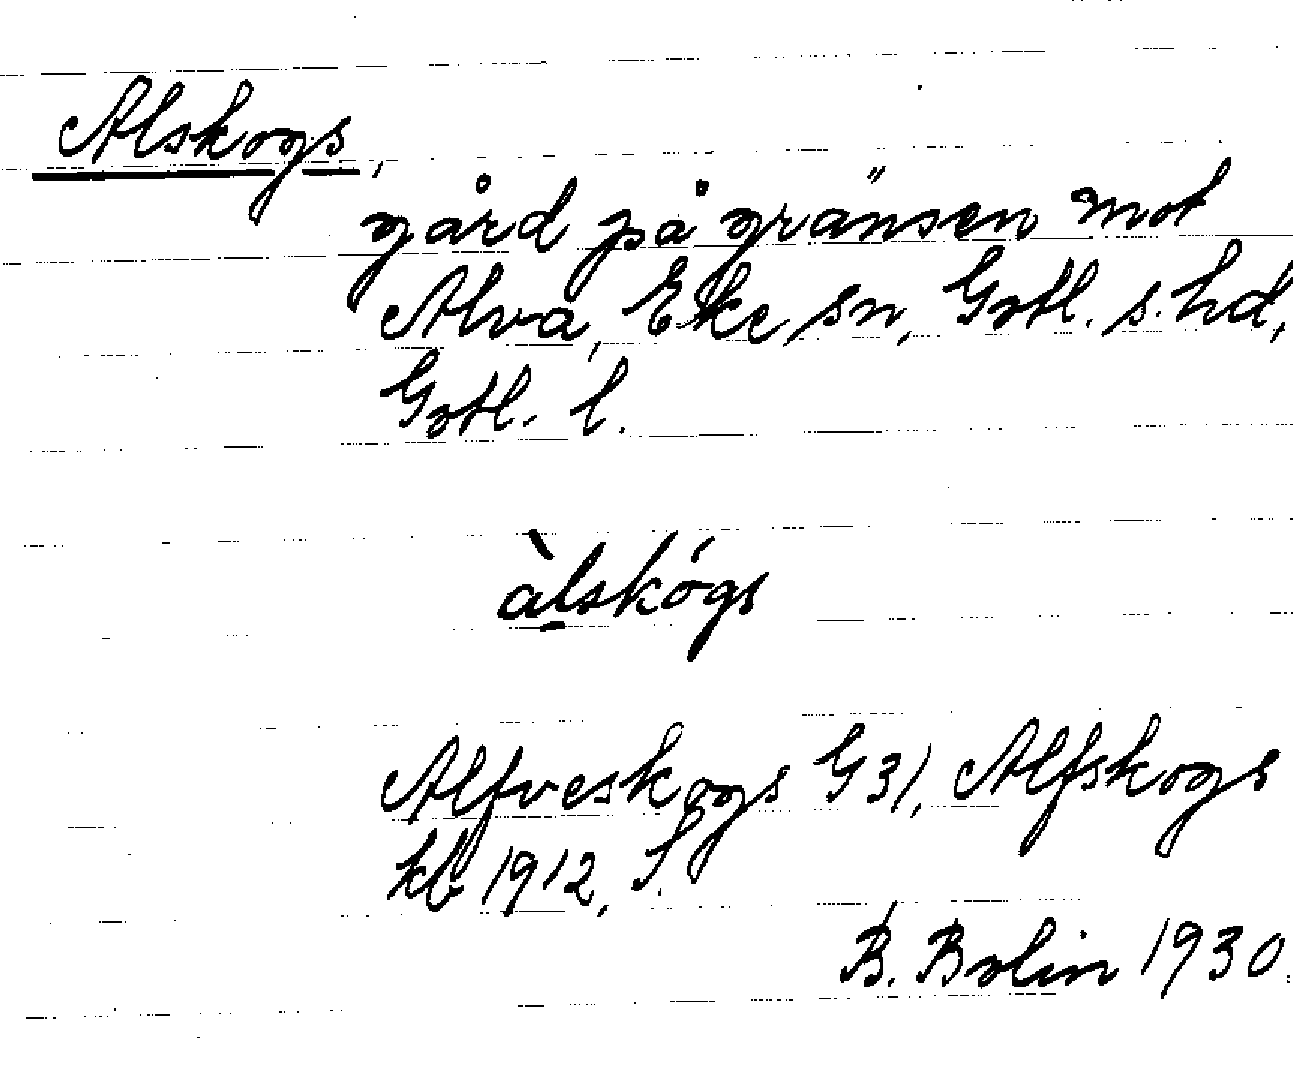 Alskogs,
gård på gränsen mot
Alva, Eke sn, Gotl. s. hd,
Gotl. l.
àlskógs
Alfveskogs G 31, Alfskogs
kb 1912, S.
B. Bolin 1930.